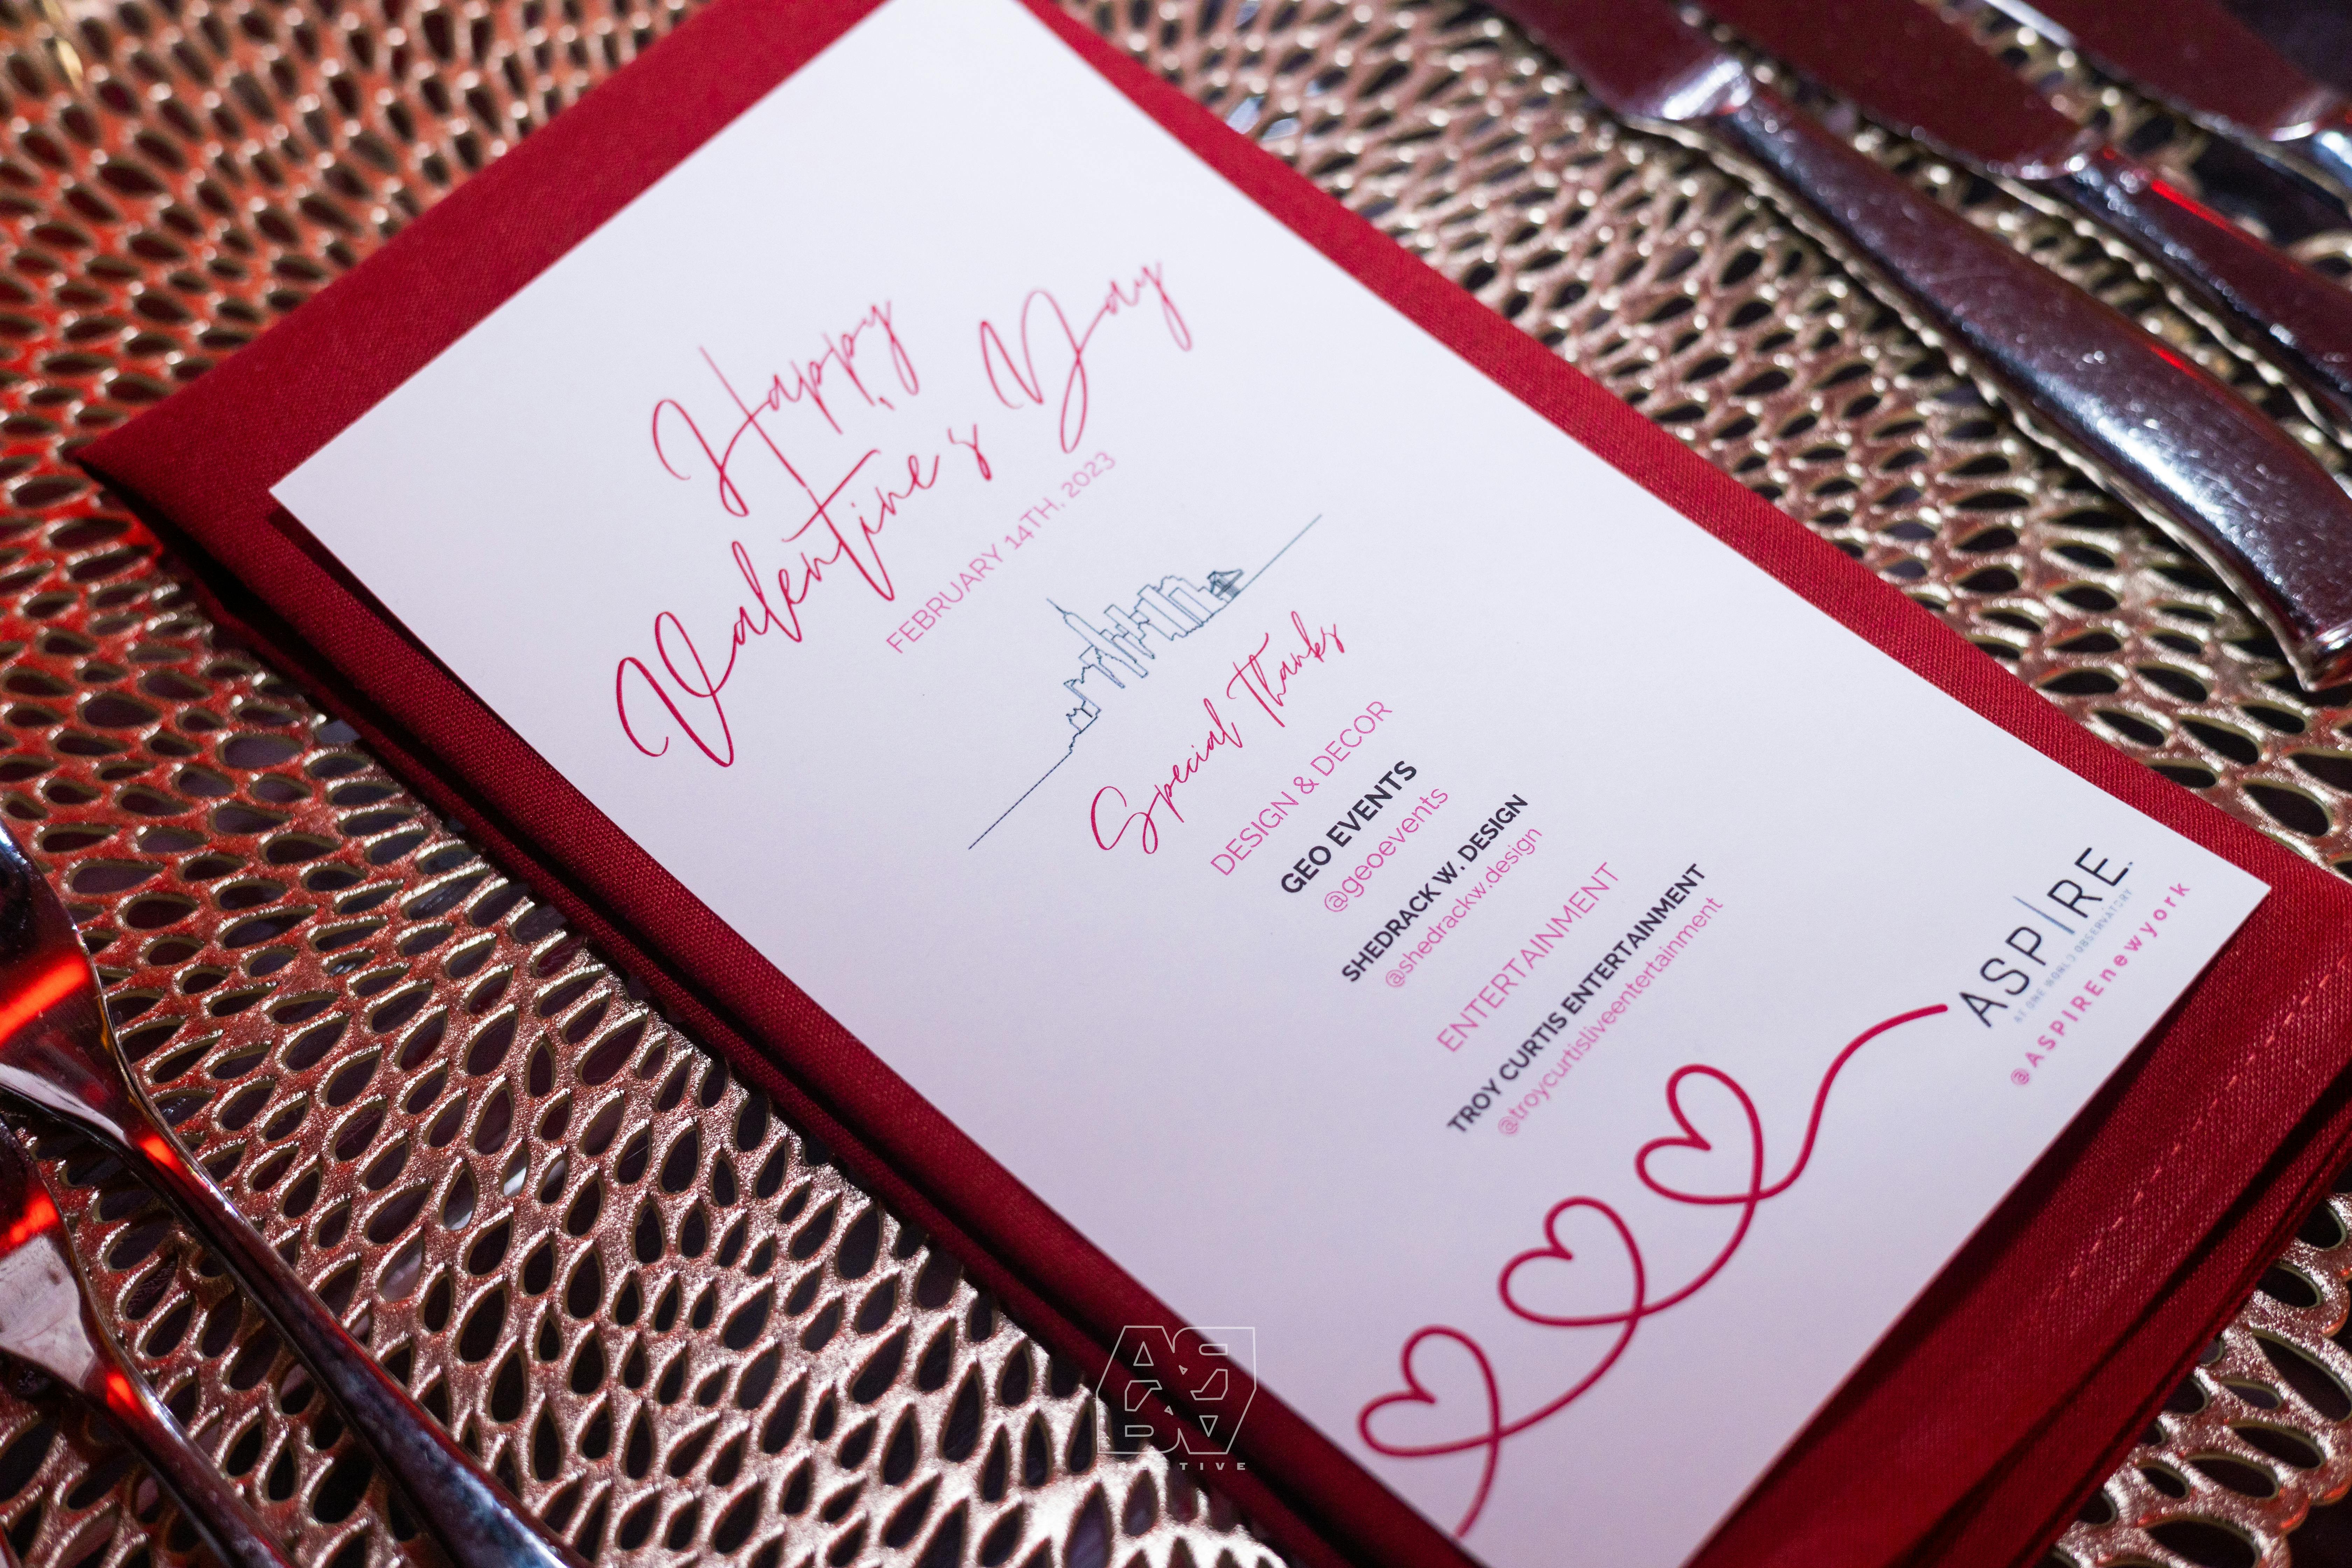 Happy
Valentine's Day
FEBRUARY 14TH, 2023
Special Thanks
DESIGN & DECOR
GEO EVENTS
@geoevents
SHEDRACK W. DESIGN
@shedrackw.design
ENTERTAINMENT
TROY CURTIS ENTERTAINMENT
@troycurtisliveentertainment
ASPIRE
AT ONE WORLD OBSERVATORY
@ASPIREnewyork